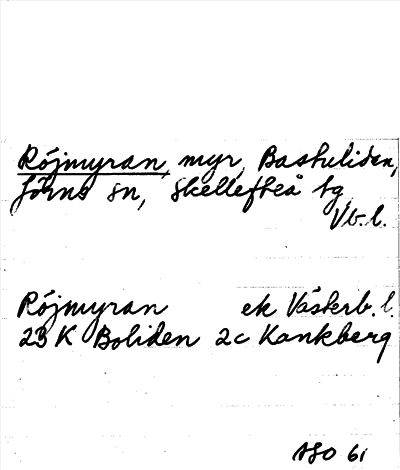 Röjmyran, myr, Bastuliden,
Jörns sn, Skellefteå tg,
Vb. l.
Röjmyran ek Västerb. l.
23 K Boliden 2c Kankberg
ASO 61